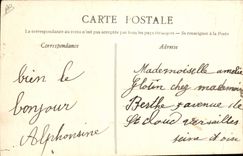 CARTE POSTALE
La correspondance au recto n'est pas acceptée par tous les pays étrangers. — Se renseigner à la Poste
Correspondance
Adresse
bien le
bonjour
Alphonsine
Mademoiselle amélie
Glotin chez mademoi
Berthe avenue de
St cloud versailles
seine et oise